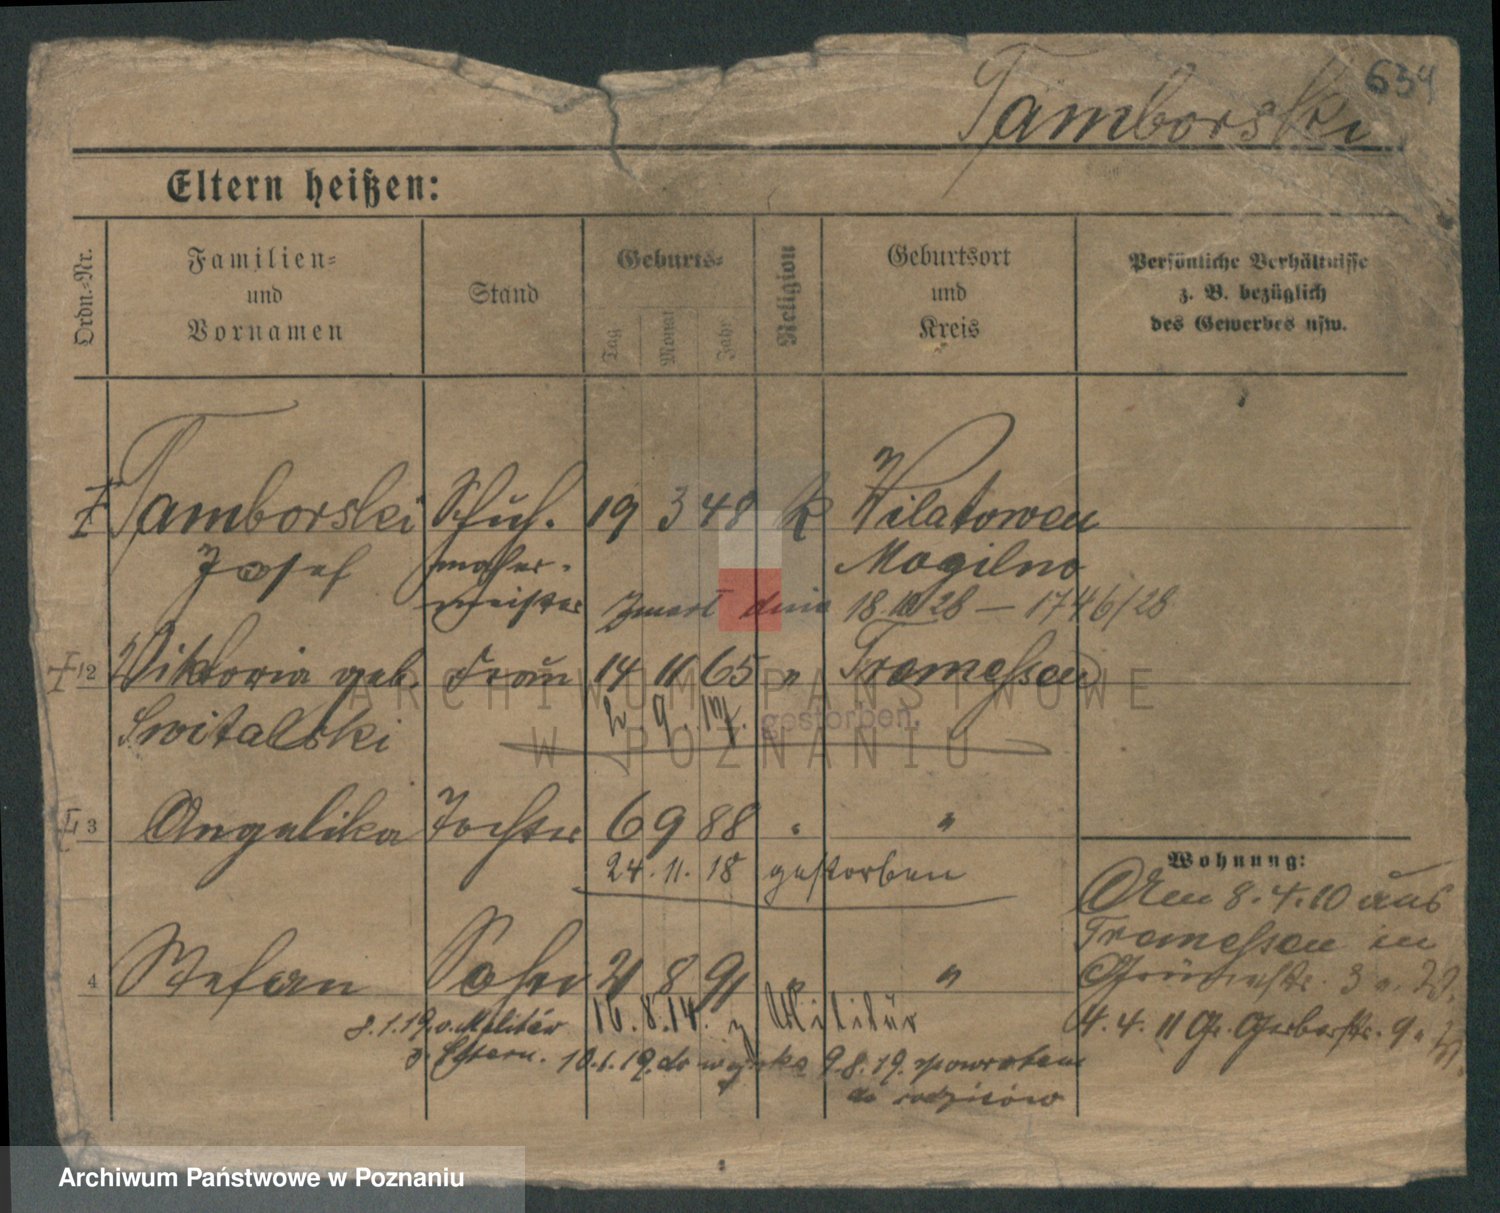 634
Tamborski
Eltern heißen:
Ordn.-Nr.
Familien-
und
Vornamen
Stand
Geburts-
Tag
Monat
Jahr
Religion
Geburtsort
und
Kreis
Persönliche Verhältnisse
z. B. bezüglich
des Gewerbes usw.
Tamborski Schuh- 19 3 48 k Wilatowen
Josef macher- Mogilno
meister Zmarł dnia 18.10.28 – 1746/28
2 Viktoria geb. Frau 14 11 65 " Tremessen
Switalski 2. 9. 17. gestorben.
3 Angelika Tochter 6 9 88 " "
24. 11. 18 gestorben
Wohnung:
Am 8.4.10 aus
Tremessen in
4 Stefan Sohn 21 8 91 " "
16. 8. 14. z Militär
8.1.19. v. Militär
z. Eltern. 10.1.19. do wojska 9.8.19. spowrotem
do rodziców
4. 4. 11 Gr. Gerberstr. 9
ARCHIWUM PAŃSTWOWE
W POZNANIU
Archiwum Państwowe w Poznaniu